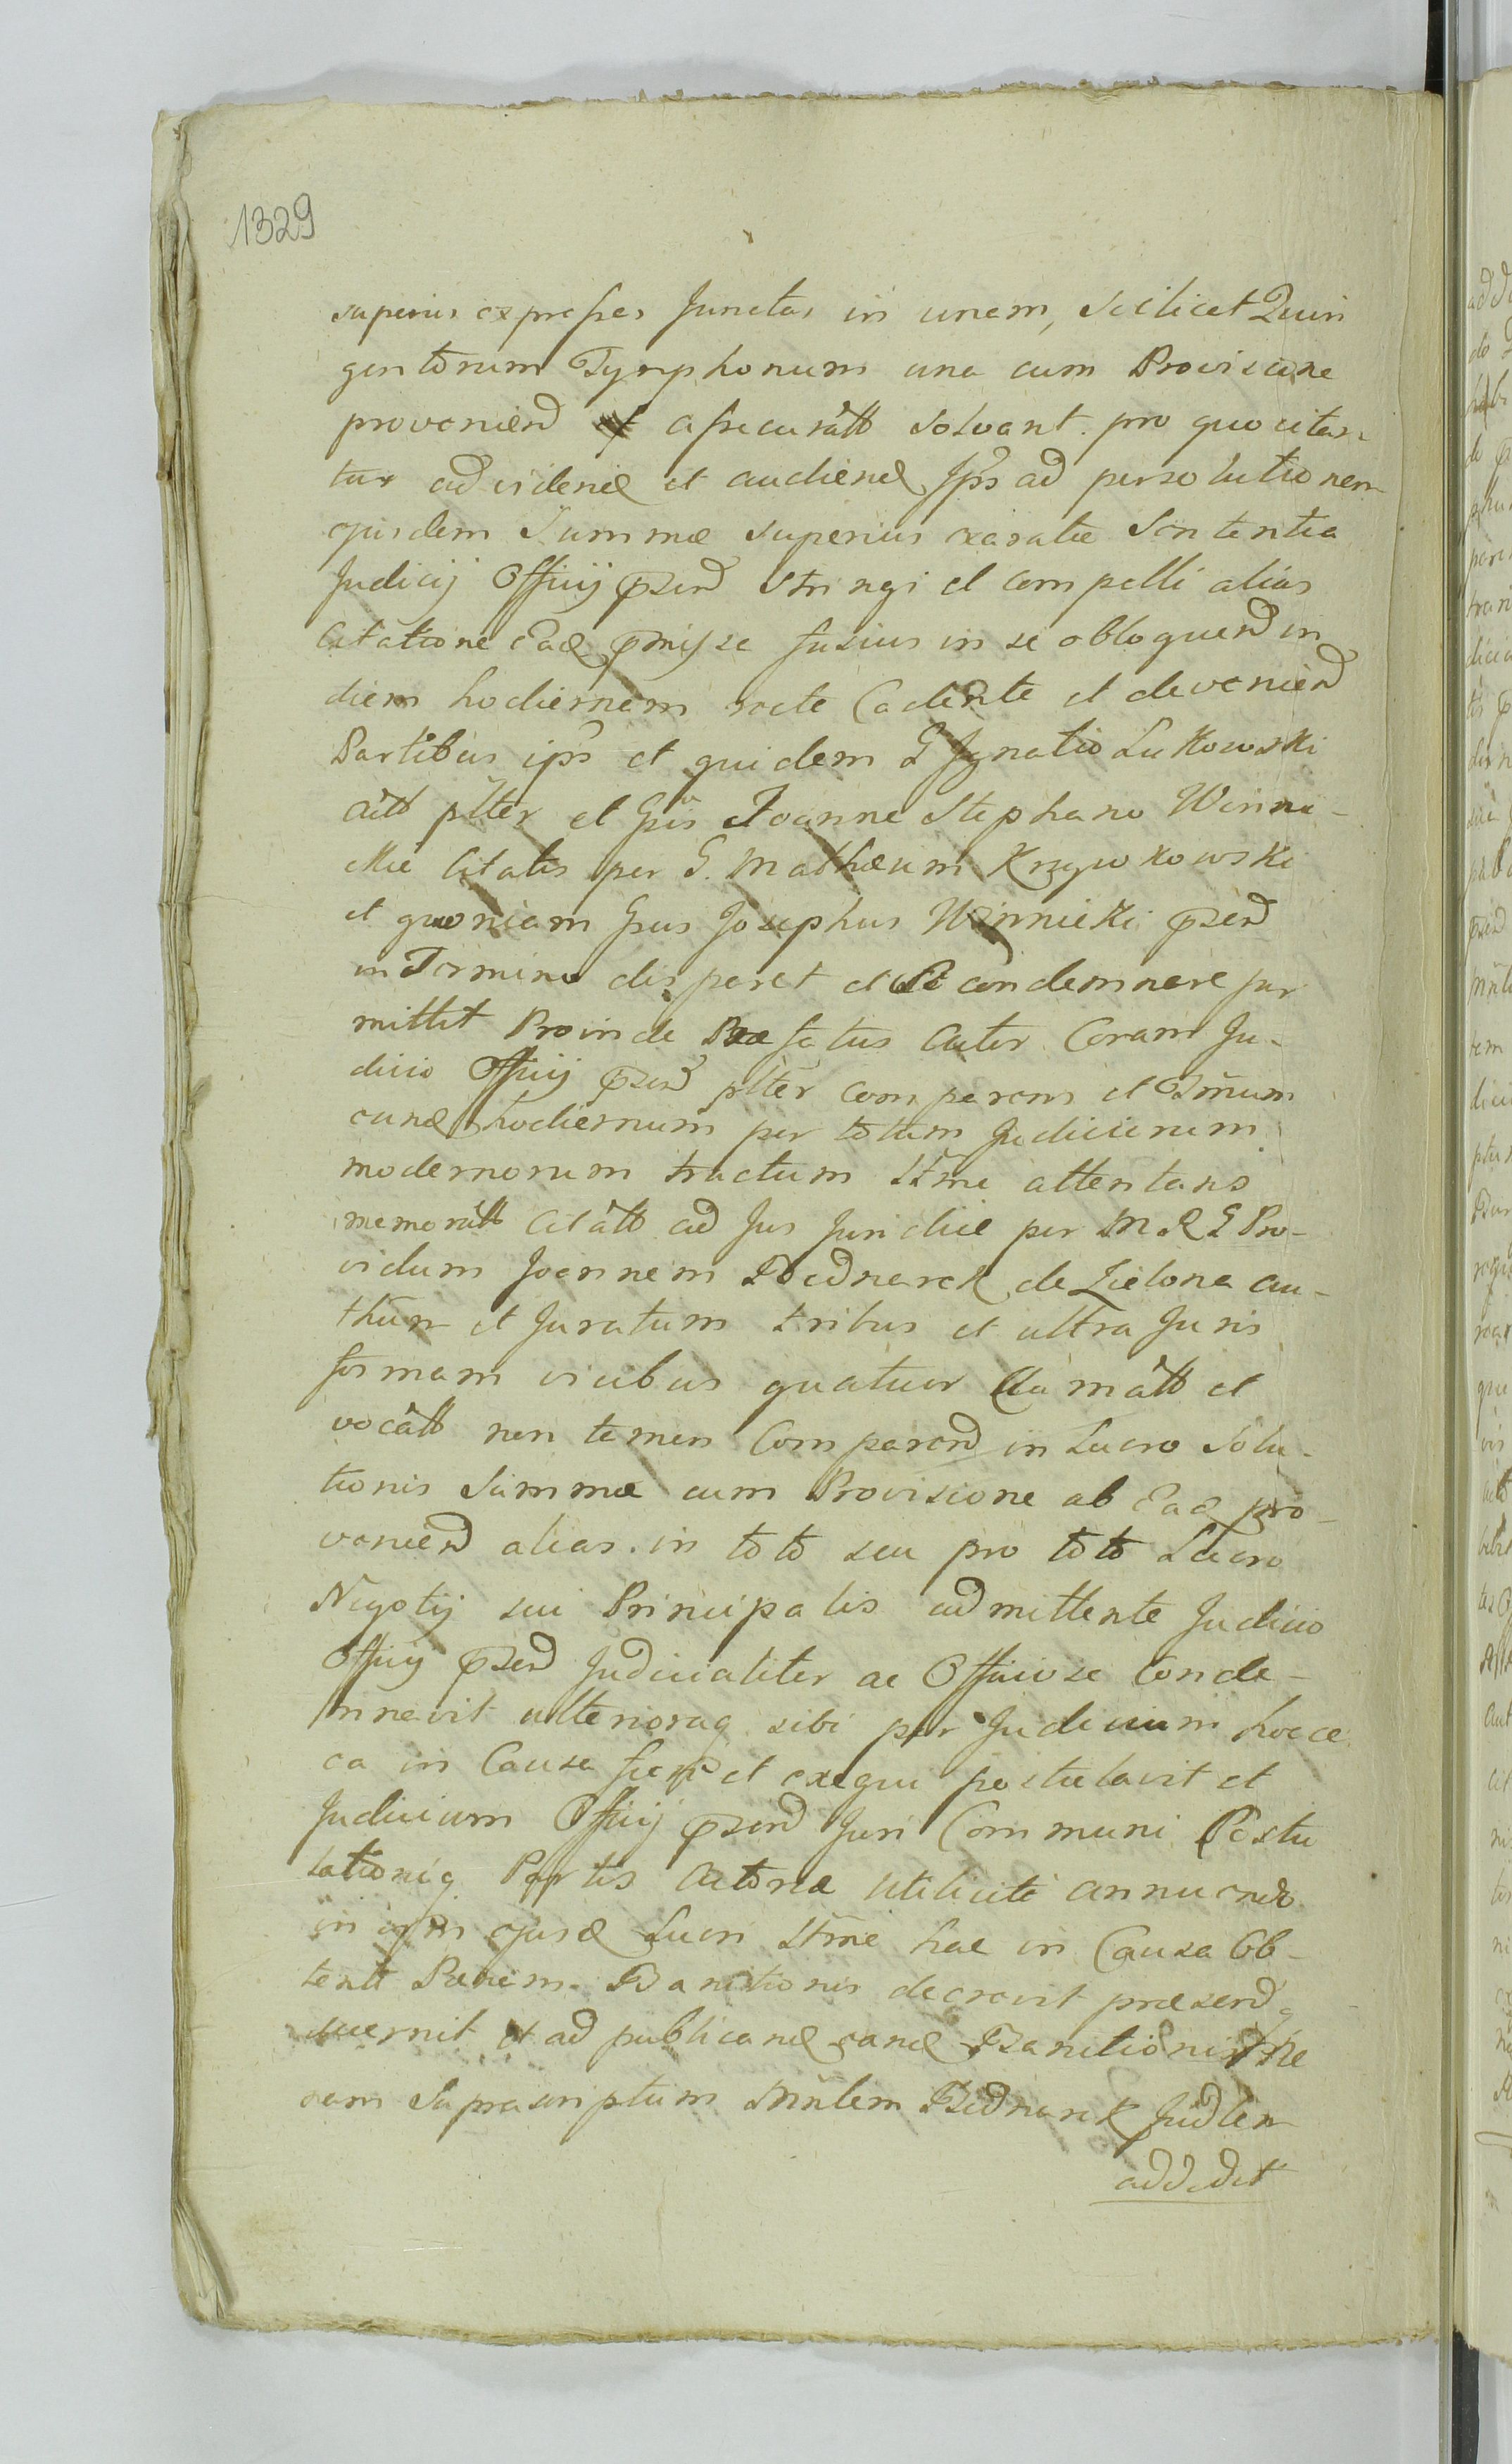 1329
superius expressas Junctas in unam, Scilicet Quin
gentorum Tymphonum una cum Provisione
provenien̄d assecurātt solvant. pro quo citan-
tur ad viden̄d et audien̄d Jp̄s ad persolutionem
ejusdem Summæ superius exaratæ Sententia
Judicij Officij p̄zend stringi et compelli alias
Citatione Ead p̄missa fusius in se obloquen̄d in
diem hodiernam recte Cadente et devenien̄d
Partibus ip̄s et quidem G Ignatio Lukowski
Actt pl̄ter et Gn̄s Joanne Stephano Winni-
ckie Citatis per G. Mathæum Krzywkowski
et quoniam Gn̄us Josephus Winnicki p̄zend
in Termino disparet et se condemnare per
mittit Proinde Præfatus Actor Coram Ju-
dicio Officij p̄zend pl̄ter comparens et T̄rminum
eund hodiernum per totum Judiciorum
modernorum tractum Lt̄me attentans
memorātt Citātt ad Jus Juridice per M R G Pro-
vidum Joannem Bednarek de Zielona au-
thūm et Juratum tribus et ultra Juris
formam vicibus quatuor Clamātt et
vocātt non tamen Comparen̄d in Lucro Solu-
tionis Summæ cum Provisione ab Ead pro-
venien̄d alias. in toto seu pro toto Lucro
Negotij sui Principalis admittente Judicio
Officij p̄zend Judicialiter ac Officiose Conde-
mnavit ulterioraq sibi per Judicium hocce
ea in Causa fieri et exequi postulavit et
Judicium Officij p̄zend Juri Communi Postu
lationiq Partis Actoreæ utilicite annuendo
in vim ejusd Lucri Lt̄me hac in Causa Ob-
tentt Pœnam Banitionis decrevit præsend q
decernit et ad publicand eand Banitionis Pæ
nam Suprascriptum Mn̄lem Bednarek Jud̄lem
addidit